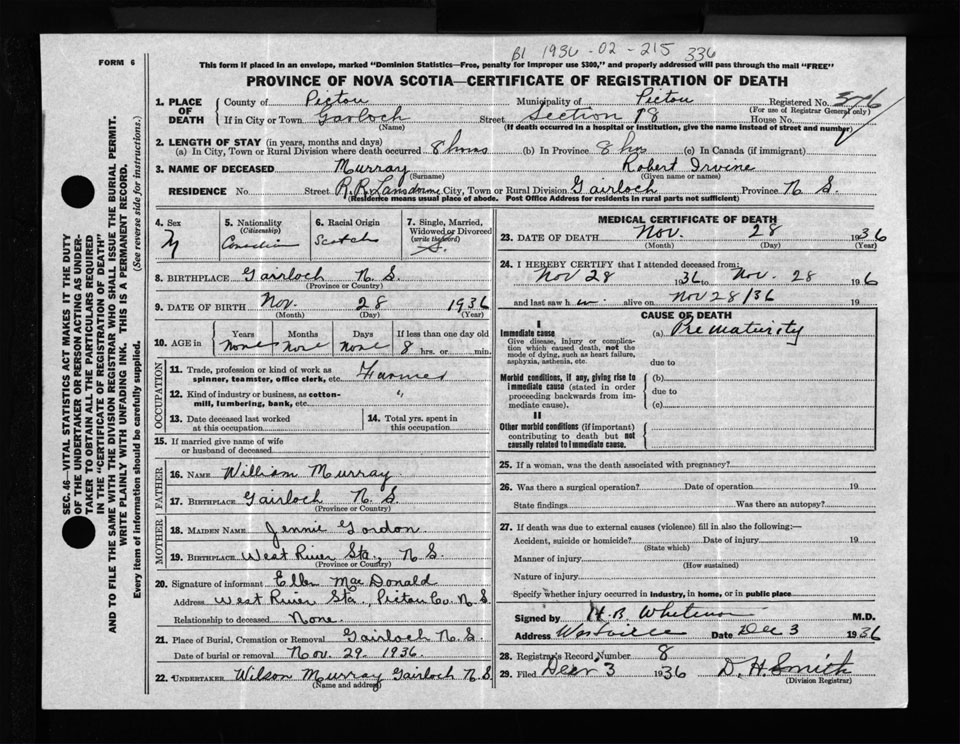 B1 1936-02-215 336
FORM 6
This form if placed in an envelope, marked "Dominion Statistics—Free, penalty for improper use $300," and properly addressed will pass through the mail "FREE"
PROVINCE OF NOVA SCOTIA—CERTIFICATE OF REGISTRATION OF DEATH
1. PLACE OF DEATH
County of Pictou Municipality of Pictou Registered No.
(For use of Registrar General only)
If in City or Town Garloch Street Section 98 House No.
(Name) (If death occurred in a hospital or institution, give the name instead of street and number)
2. LENGTH OF STAY (in years, months and days)
(a) In City, Town or Rural Division where death occurred 8 hours (b) In Province 8 hrs (c) In Canada (if immigrant)
3. NAME OF DECEASED Murray Robert Irvine
(Surname) (Given name or names)
RESIDENCE No. Street R.R. Lansdowne City, Town or Rural Division Gairloch Province N S.
(Residence means usual place of abode. Post Office Address for residents in rural parts not sufficient)
4. Sex M
5. Nationality (Citizenship) Canadian
6. Racial Origin Scotch
7. Single, Married, Widowed or Divorced (write the word) S.
8. BIRTHPLACE Gairloch N S.
(Province or Country)
9. DATE OF BIRTH Nov. 28 1936
(Month) (Day) (Year)
10. AGE in Years None Months None Days None If less than one day old 8 hrs. or min.
OCCUPATION
11. Trade, profession or kind of work as spinner, teamster, office clerk, etc. Farmer
12. Kind of industry or business, as cotton-mill, lumbering, bank, etc. "
13. Date deceased last worked at this occupation
14. Total yrs. spent in this occupation
15. If married give name of wife or husband of deceased
FATHER
16. NAME William Murray
17. BIRTHPLACE Gairloch N. S.
(Province or Country)
MOTHER
18. MAIDEN NAME Jennie Gordon
19. BIRTHPLACE West River Sta., N S.
(Province or Country)
20. Signature of informant Ellen MacDonald
Address West River Sta., Pictou Co. N. S.
Relationship to deceased None.
21. Place of Burial, Cremation or Removal Gairloch N. S.
Date of burial or removal Nov. 29. 1936.
22. UNDERTAKER Wilson Murray Gairloch N. S.
(Name and address)
MEDICAL CERTIFICATE OF DEATH
23. DATE OF DEATH Nov. 28 1936
(Month) (Day) (Year)
24. I HEREBY CERTIFY that I attended deceased from:
Nov 28 1936 to Nov. 28 19 6
and last saw h im alive on Nov 28/36 19
CAUSE OF DEATH
I
Immediate cause (a) Prematurity
Give disease, injury or complication which caused death, not the mode of dying, such as heart failure, asphyxia, asthenia, etc.
due to
Morbid conditions, if any, giving rise to immediate cause (stated in order proceeding backwards from immediate cause).
(b)
due to
(c)
II
Other morbid conditions (if important) contributing to death but not causally related to immediate cause.
25. If a woman, was the death associated with pregnancy?
26. Was there a surgical operation? Date of operation 19
State findings Was there an autopsy?
27. If death was due to external causes (violence) fill in also the following:—
Accident, suicide or homicide? Date of injury 19
(State which)
Manner of injury
(How sustained)
Nature of injury
Specify whether injury occurred in industry, in home, or in public place
Signed by H. B. Whitman M.D.
Address Westville Date Dec 3 1936
28. Registrar's Record Number 8
29. Filed Decr 3 1936 D. H. Smith
(Division Registrar)
SEC. 46—VITAL STATISTICS ACT MAKES IT THE DUTY
OF THE UNDERTAKER OR PERSON ACTING AS UNDERTAKER TO OBTAIN ALL THE PARTICULARS REQUIRED
IN THE "CERTIFICATE OF REGISTRATION OF DEATH"
AND TO FILE THE SAME WITH THE DIVISION REGISTRAR WHO SHALL ISSUE THE BURIAL PERMIT.
WRITE PLAINLY WITH UNFADING INK. THIS IS A PERMANENT RECORD.
Every item of information should be carefully supplied. (See reverse side for instructions.)